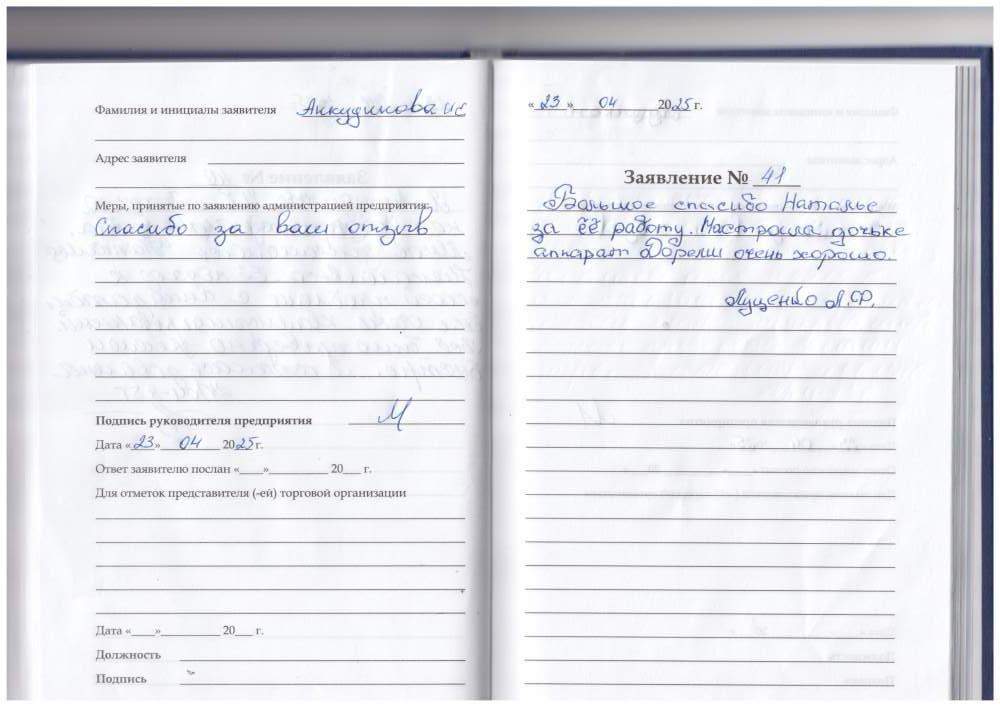 Фамилия и инициалы заявителя Анкудинова ИС
Адрес заявителя
Меры, принятые по заявлению администрацией предприятия:
Спасибо за ваш отзыв
Подпись руководителя предприятия
Дата «23» 04 2025 г.
Ответ заявителю послан «___»__________ 20___ г.
Для отметок представителя (-ей) торговой организации
Дата «____»__________ 20___ г.
Должность
Подпись
«23» 04 2025 г.
Заявление № 41
Большое спасибо Наталье
за её работу. Настроила дочьке
аппарат Дорели очень хорошо.
Луценко А.Ф.